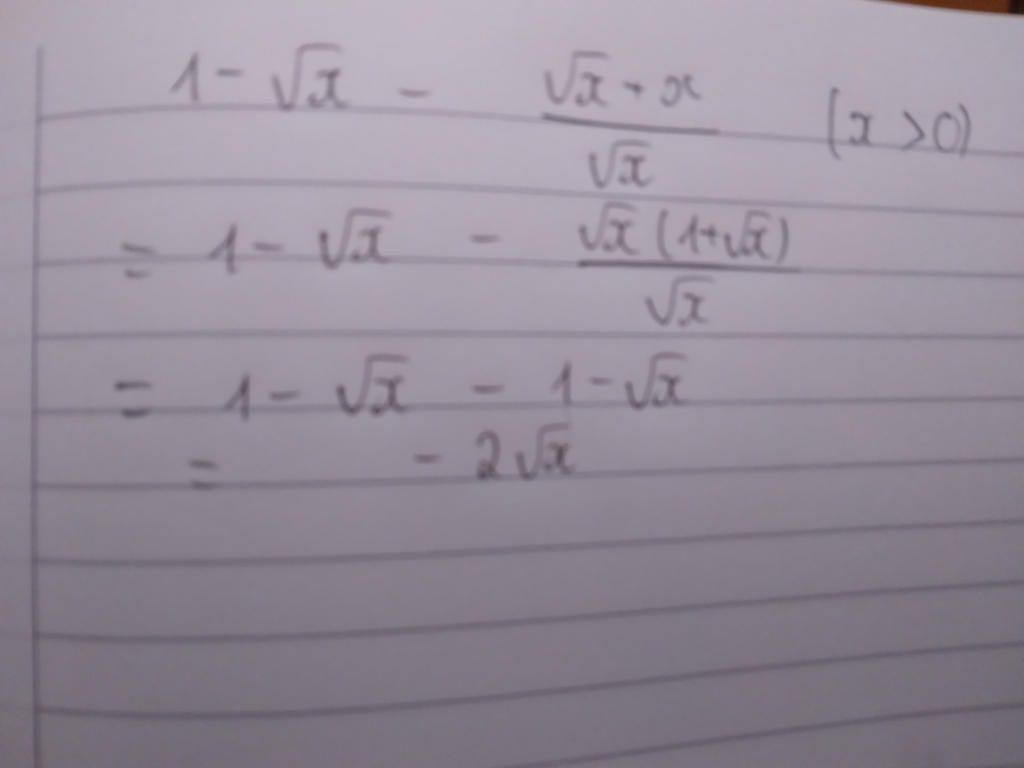 1 - √x - (√x + x)/√x (x > 0)
= 1 - √x - √x(1+√x)/√x
= 1 - √x - 1 - √x
= - 2√x